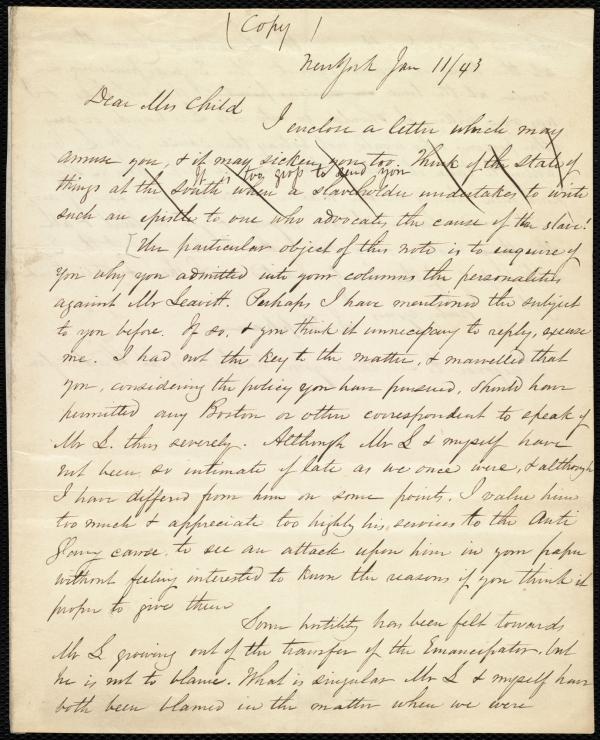 ( Copy )
New York Jan 11/43
Dear Mrs Child
I enclose a letter which may
amuse you, & it may sicken you too. Think of the state of
it is too gross to send you
things at the South when a slaveholder undertakes to write
such an epistle to one who advocates the cause of the slave!
[The particular object of this note is to enquire of
you why you admitted into your columns the personalities
against Mr Leavitt. Perhaps I have mentioned the subject
to you before. If so, & you think it unnecessary to reply, excuse
me. I had not the key to the matter, & marvelled that
you, considering the policy you have pursued, should have
permitted any Boston or other correspondent to speak of
Mr L. thus severely. Although Mr L & myself have
not been so intimate of late as we once were, & although
I have differed from him on some points, I value him
too much & appreciate too highly his services to the Anti
Slavery cause to see an attack upon him in your paper
without feeling interested to know the reasons if you think it
proper to give them
Some hostility has been felt towards
Mr L growing out of the transfer of the Emancipator, but
he is not to blame. What is singular Mr L & myself have
both been blamed in the matter when we were